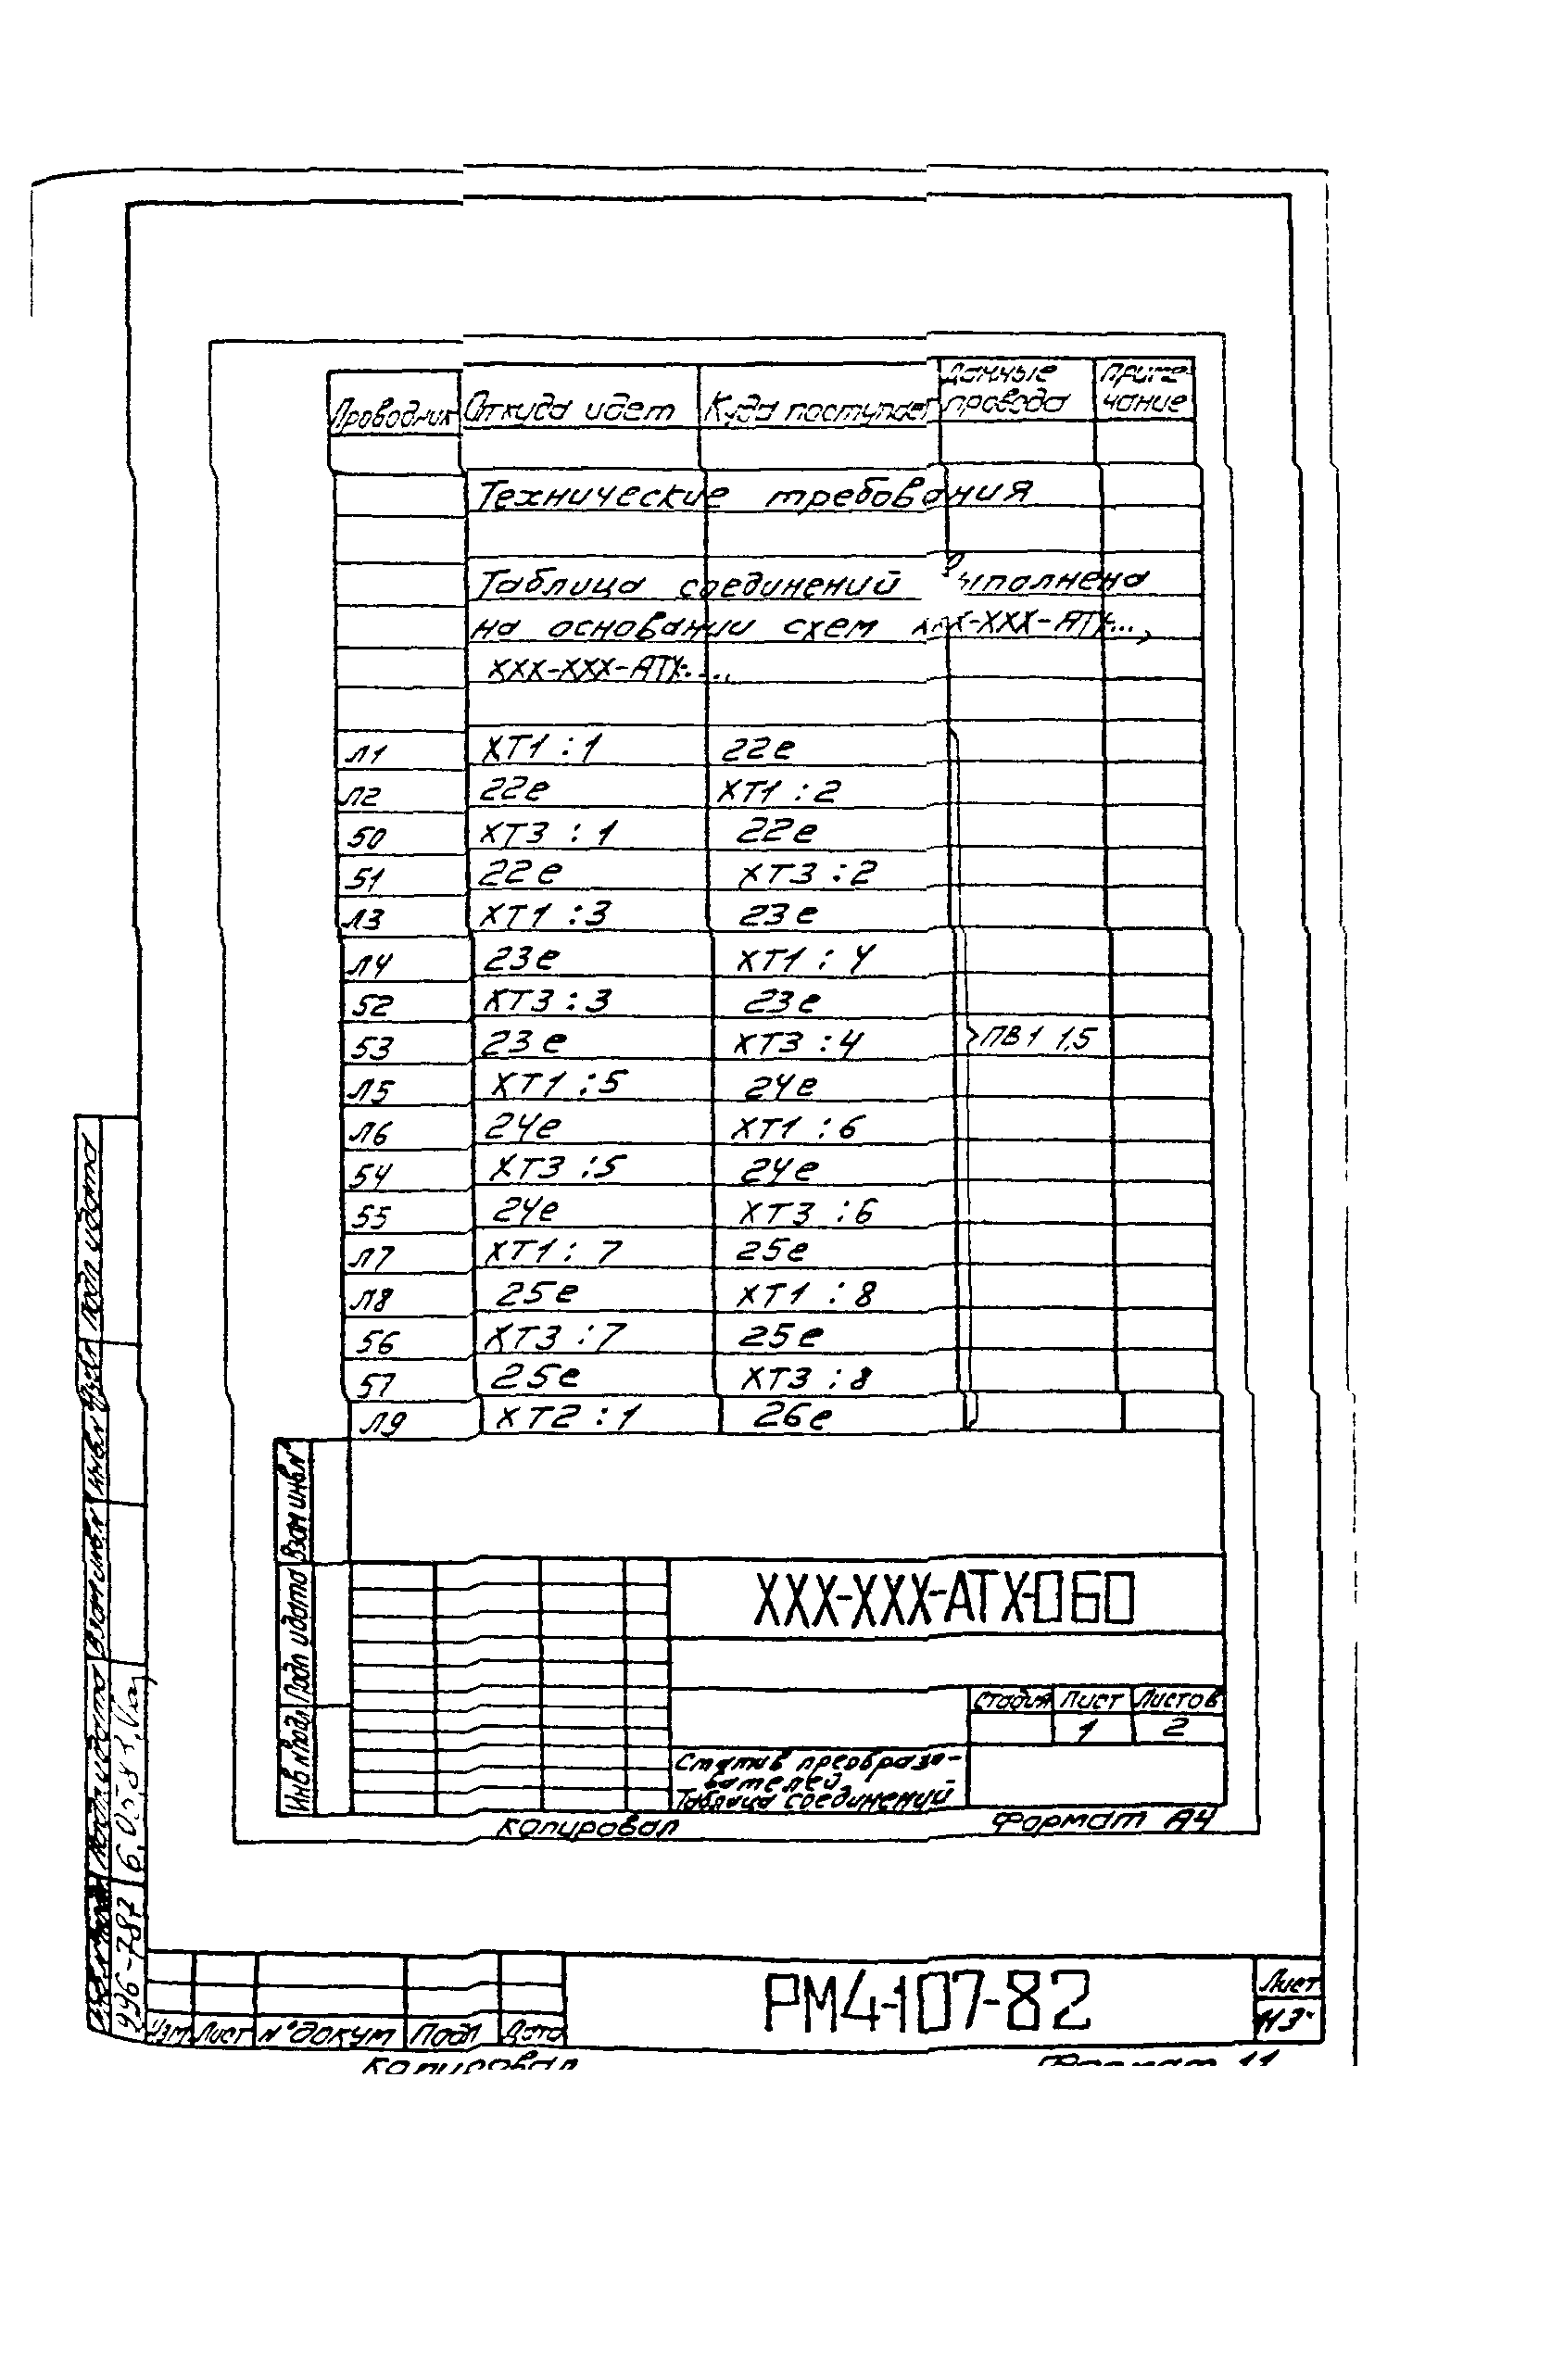 Проводник Откуда идет Куда поступает Данные провода Примечание
Технические требования
Таблица соединений выполнена
на основании схем ХХХ-ХХХ-АТХ...,
ХХХ-ХХХ-АТХ....
Л1 ХТ1 : 1 22е
Л2 22е ХТ1 : 2
50 ХТ3 : 1 22е
51 22е ХТ3 : 2
Л3 ХТ1 : 3 23е
Л4 23е ХТ1 : 4
52 ХТ3 : 3 23е
53 23е ХТ3 : 4 ПВ1 1,5
Л5 ХТ1 : 5 24е
Л6 24е ХТ1 : 6
54 ХТ3 : 5 24е
55 24е ХТ3 : 6
Л7 ХТ1 : 7 25е
Л8 25е ХТ1 : 8
56 ХТ3 : 7 25е
57 25е ХТ3 : 8
Л9 ХТ2 : 1 26е
Взам инв.N
Подп и дата
Инв N подл
ХХХ-ХХХ-АТХ-060
Стадия Лист Листов
1 2
Статив преобразо-
вателей.
Таблица соединений
Копировал Формат А4
Подп и дата
Взам инв N
Подп и дата
РМ4-107-82
Лист
Изм Лист N° докум Подп Дата
Копировал Формат 11